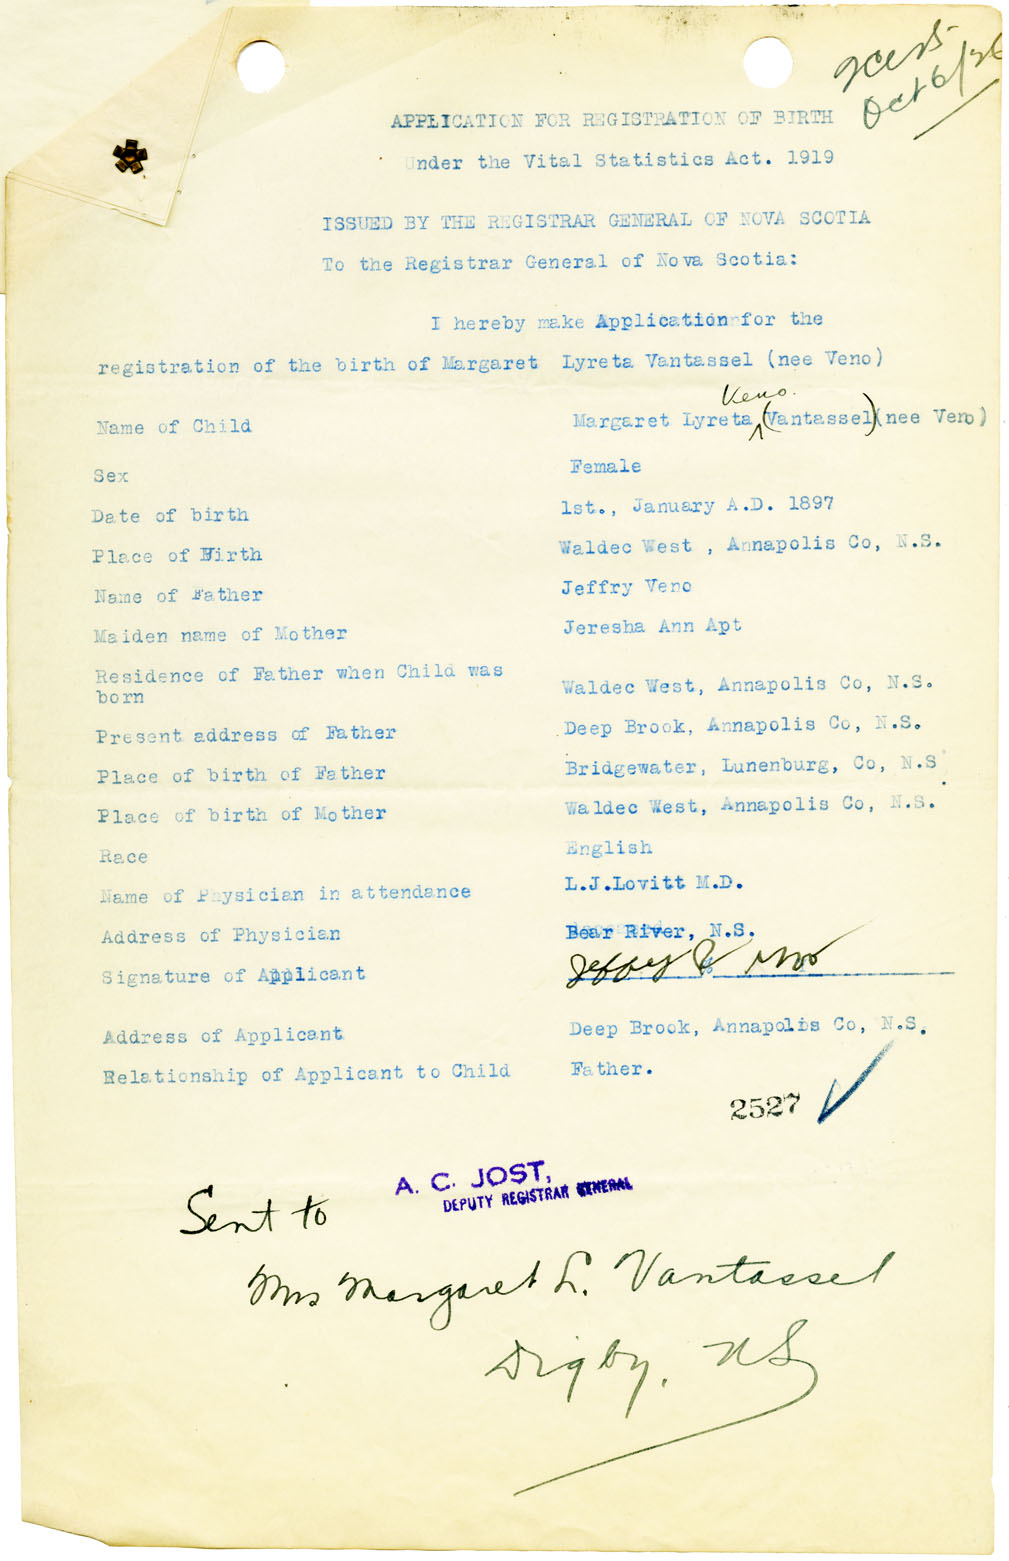 Oct 6/26
APPLICATION FOR REGISTRATION OF BIRTH
Under the Vital Statistics Act. 1919
ISSUED BY THE REGISTRAR GENERAL OF NOVA SCOTIA
To the Registrar General of Nova Scotia:
I hereby make Application for the
registration of the birth of Margaret Lyreta Vantassel (nee Veno)
Veno.
Name of Child Margaret Lyreta (Vantassel)(nee Veno)
Sex Female
Date of birth 1st., January A.D. 1897
Place of Birth Waldec West , Annapolis Co, N.S.
Name of Father Jeffry Veno
Maiden name of Mother Jeresha Ann Apt
Residence of Father when Child was
born Waldec West, Annapolis Co, N.S.
Present address of Father Deep Brook, Annapolis Co, N.S.
Place of birth of Father Bridgewater, Lunenburg, Co, N.S.
Place of birth of Mother Waldec West, Annapolis Co, N.S.
Race English
Name of Physician in attendance L.J.Lovitt M.D.
Address of Physician Bear River, N.S.
Signature of Applicant
Address of Applicant Deep Brook, Annapolis Co, N.S.
Relationship of Applicant to Child Father.
2527
A. C. JOST,
DEPUTY REGISTRAR GENERAL
Sent to
Mrs Margaret L. Vantassel
Digby, NS